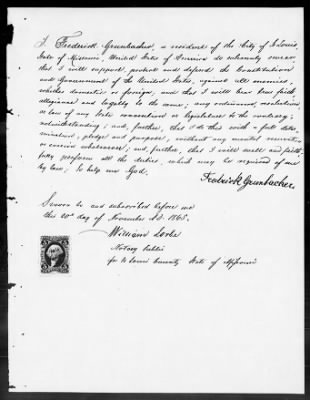 I, Frederick Grunbacher, a resident of the City of St Louis,
State of Missouri, United States of America do solemnly swear
that I will support, protect and defend the Constitution
and Government of the United States, against all enemies,
whether domestic or foreign, and that I will bear true faith,
allegiance and loyalty to the same; any ordinance, resolution
or law of any State convention or legislature to the contrary,
notwithstanding; and, further, that I do this with a full deter-
mination, pledge and purpose, without any mental reservation
or evasion whatsoever; and, further, that I will well and faith-
fully perform all the duties, which may be required of me
by law; So help me God.
Fredrick Grunbacher
Sworn to and subscribed before me
this 20th day of November A.D. 1865.
William
Notary Public
for St Louis County State of Missouri